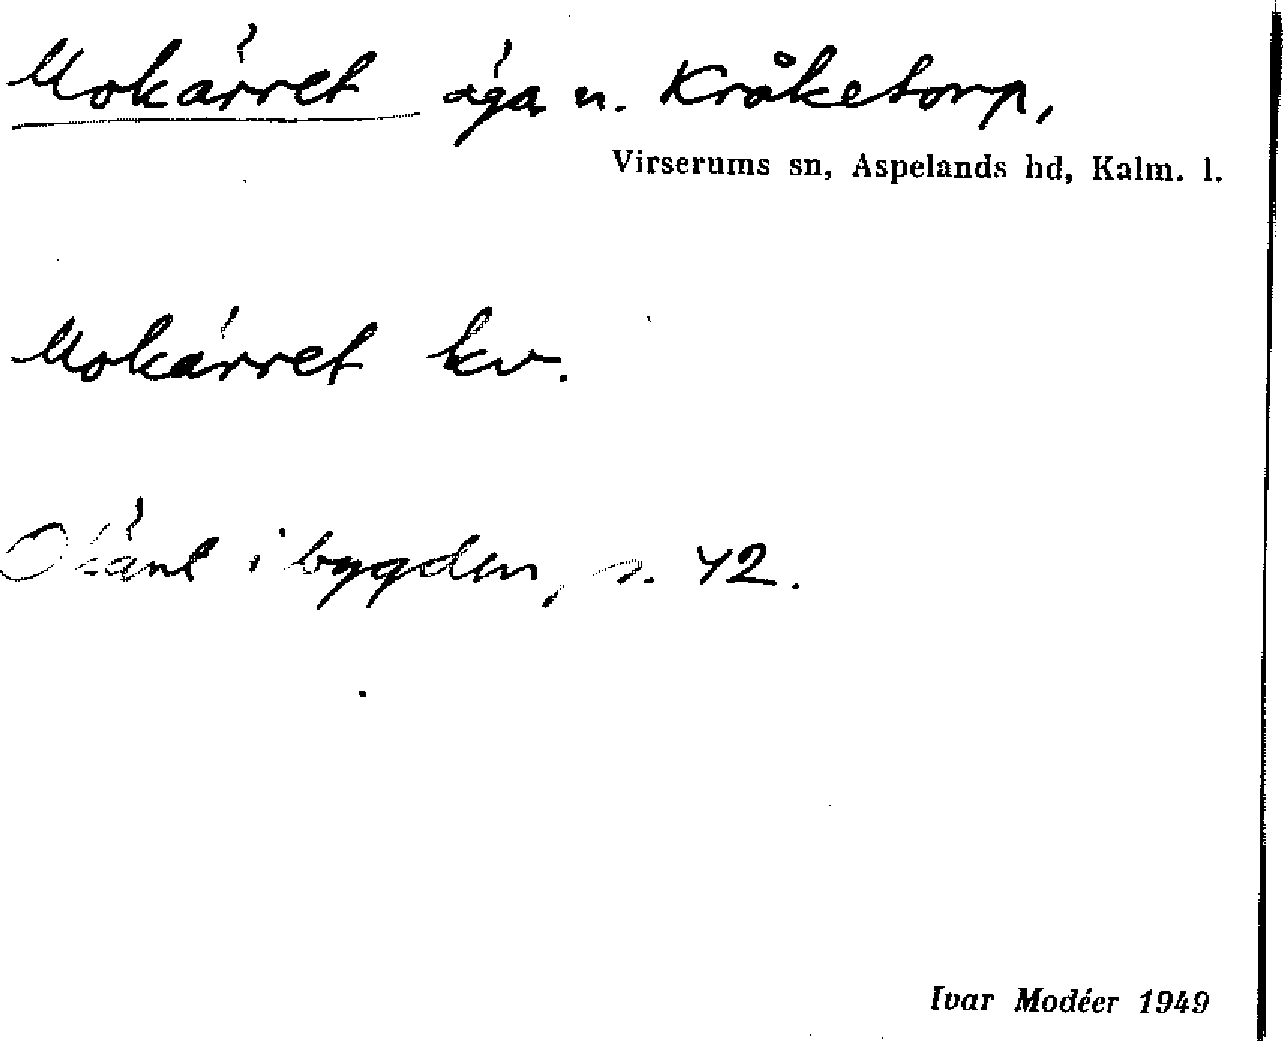 Mokärret äga n. Kråketorp,
Virserums sn, Aspelands hd, Kalm. l.
Mokärret kv.
Okänt i bygden, n. 42.
Ivar Modéer 1949